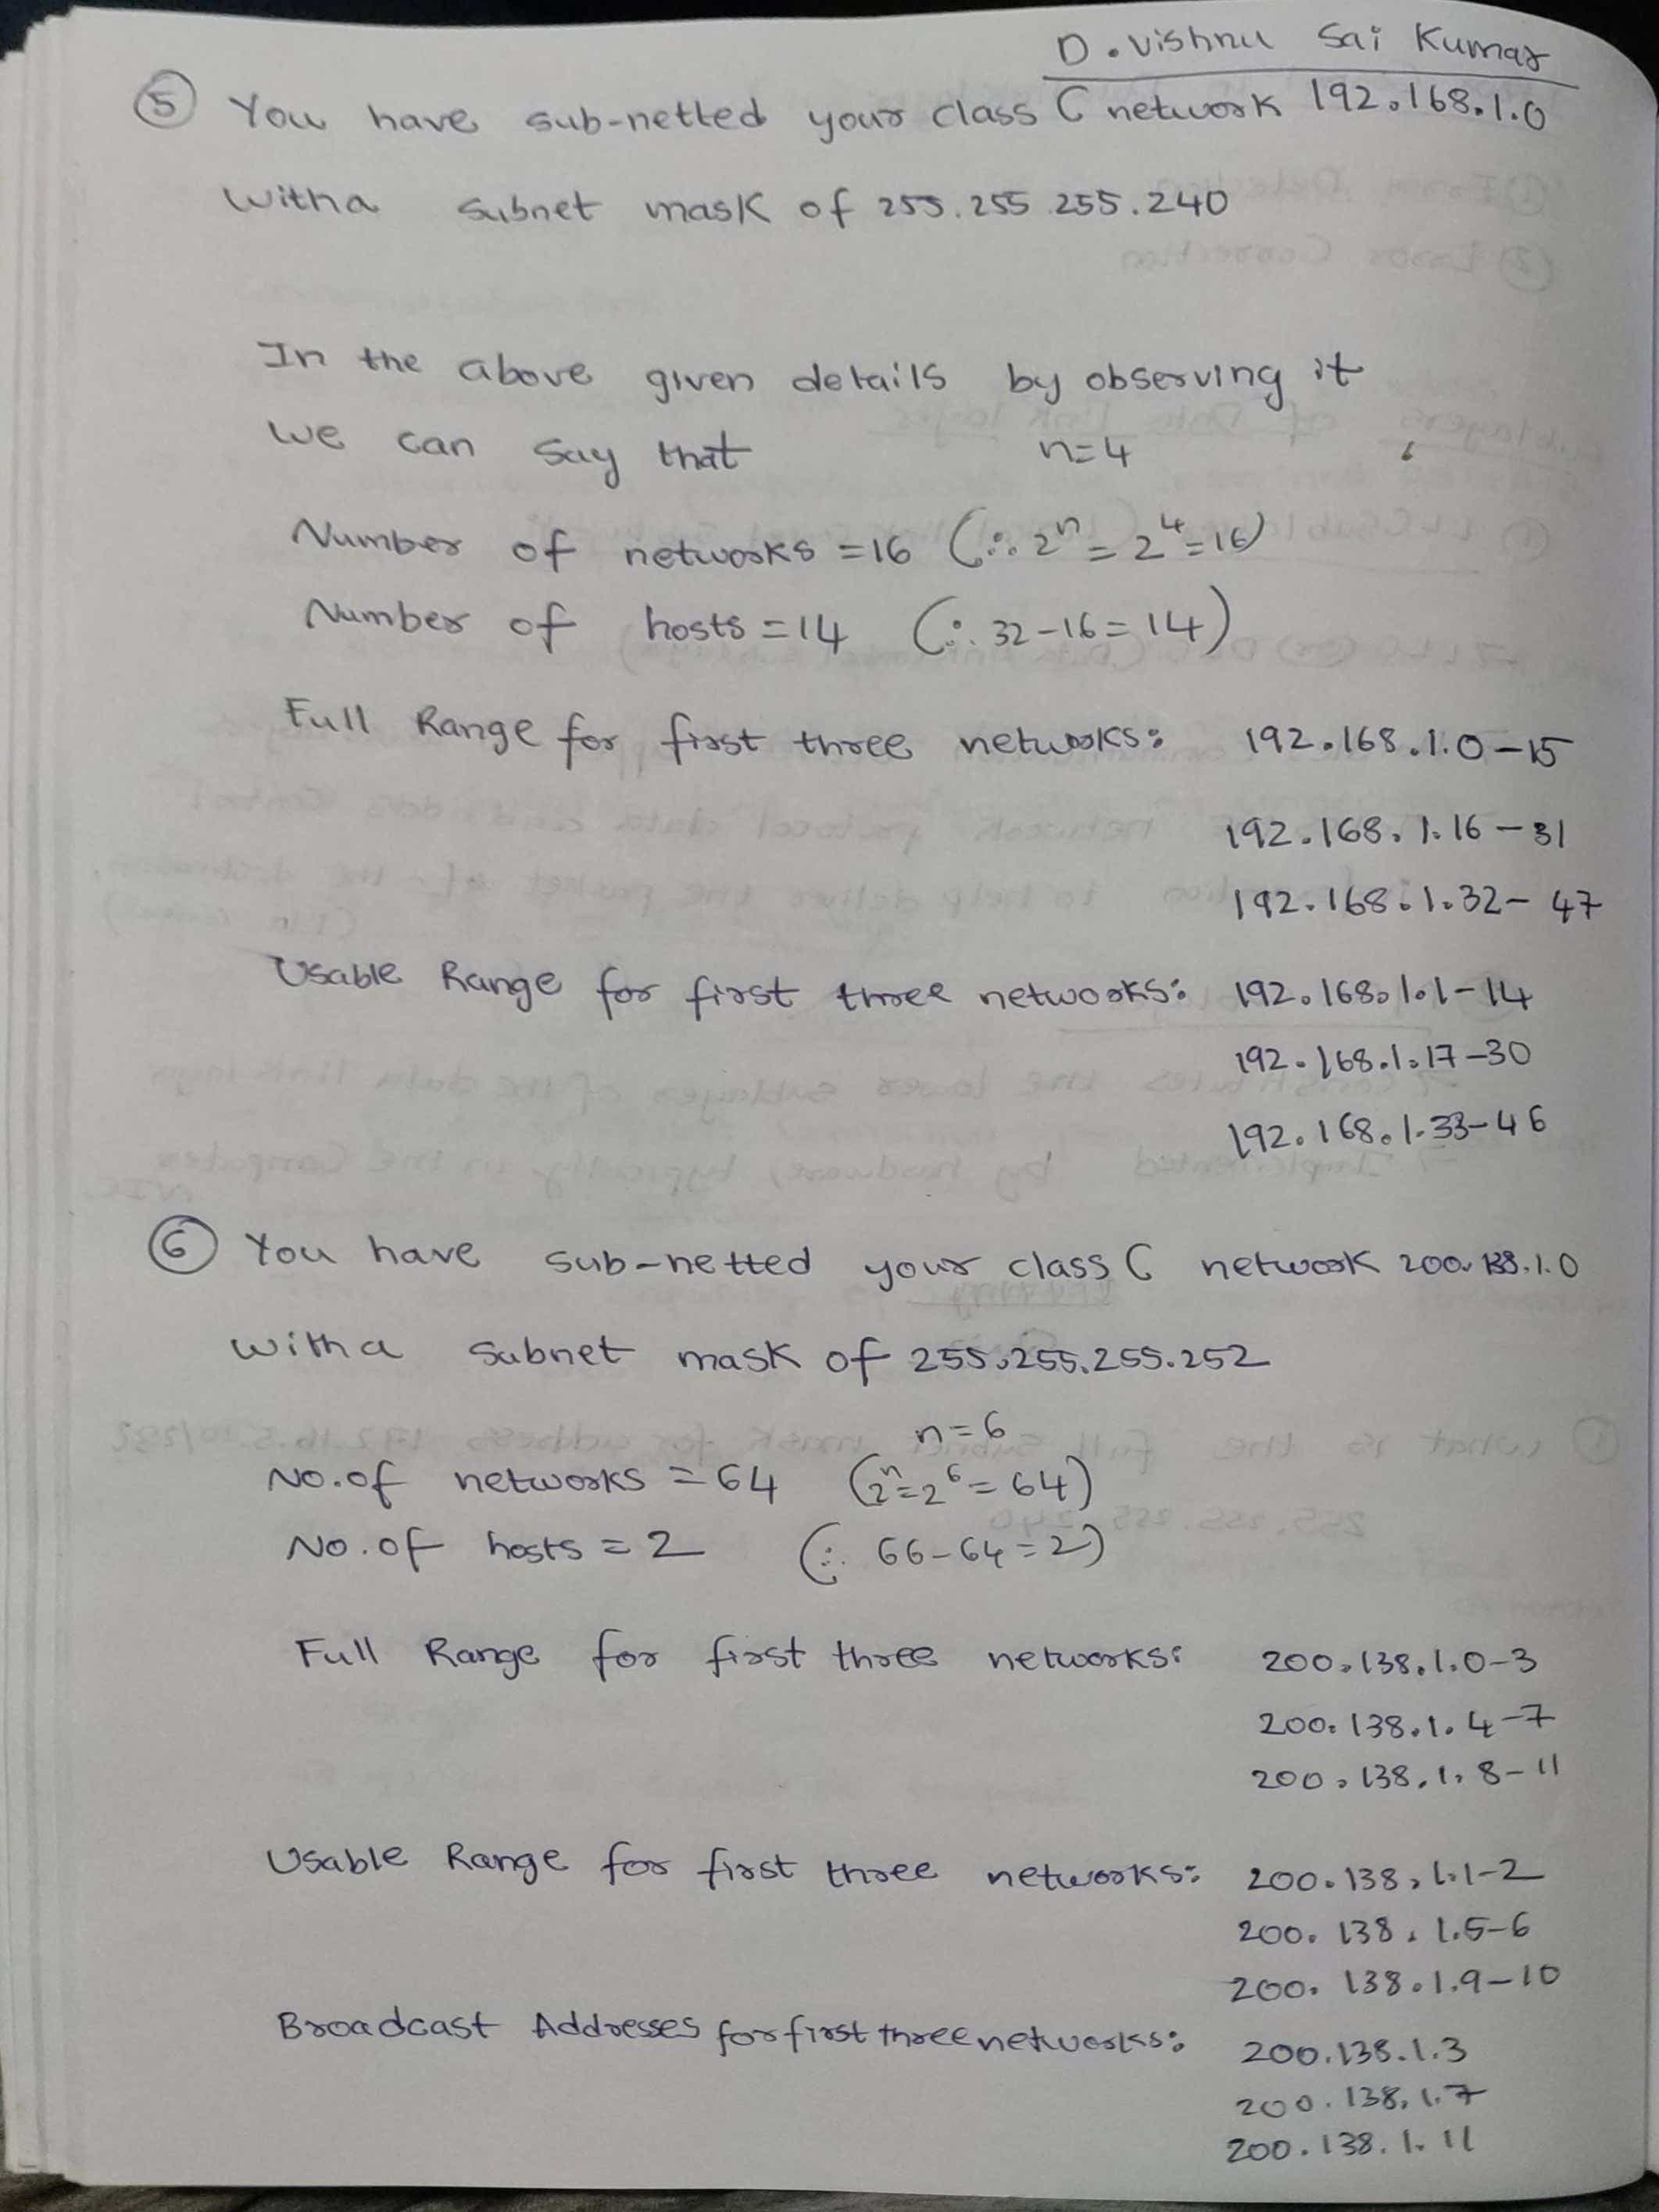 D. Vishnu Sai Kumar
⑤ You have sub-netted your class C network 192.168.1.0
with a subnet mask of 255.255.255.240
In the above given details by observing it
we can say that n=4
Number of networks =16 (∵ 2ⁿ = 2⁴ = 16)
Number of hosts =14 (∵ 32-16=14)
Full Range for first three networks: 192.168.1.0-15
192.168.1.16-31
192.168.1.32-47
Usable Range for first three networks: 192.168.1.1-14
192.168.1.17-30
192.168.1.33-46
⑥ You have sub-netted your class C network 200.138.1.0
with a subnet mask of 255.255.255.252
n=6
No. of networks = 64 (2ⁿ=2⁶=64)
No. of hosts = 2 (∵ 66-64=2)
Full Range for first three networks: 200.138.1.0-3
200.138.1.4-7
200.138.1.8-11
Usable Range for first three networks: 200.138.1.1-2
200.138.1.5-6
200.138.1.9-10
Broadcast Addresses for first three networks: 200.138.1.3
200.138.1.7
200.138.1.11